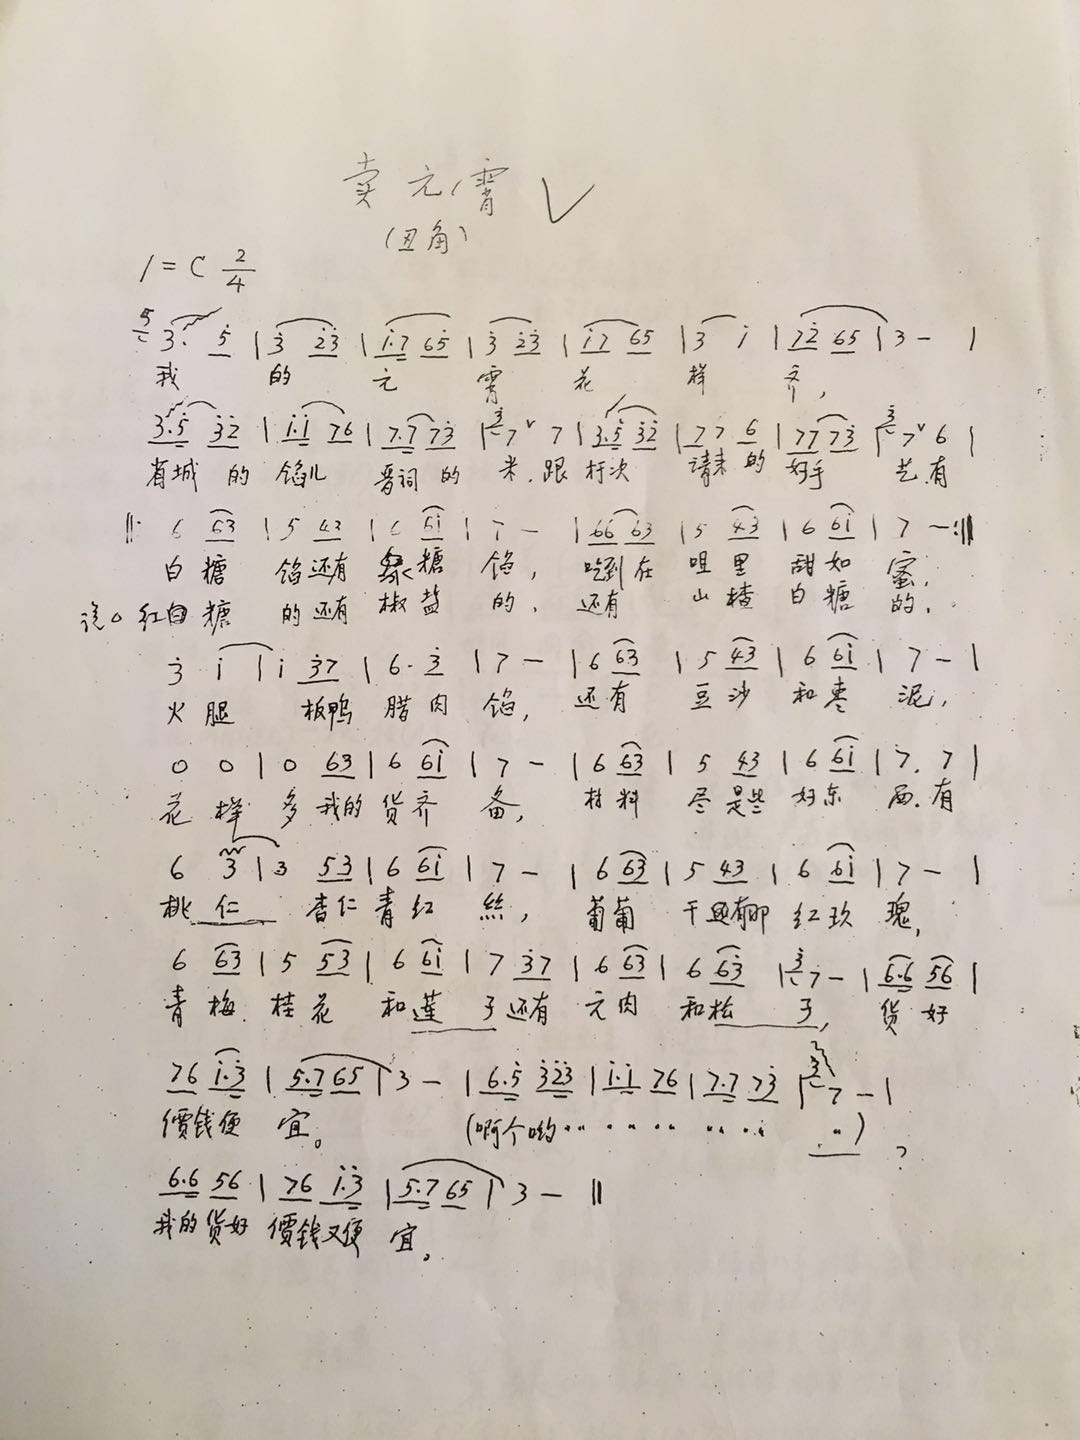 卖元宵 ✓
(丑角)
1=C 2/4
5 3· 5 | 3 23 | 1·7 65 | 3 23 | 17 65 | 3 1 | 72 65 | 3 - |
我 的 元 宵 花 样 齐,
3·5 32 | 1·1 76 | 7·7 73 | 3 7 ˅ 7 | 3·5 32 | 77 6 | 77 73 | 3 7 ˅ 6 |
省城 的 馅儿 晋祠 的 米.跟 请来 的 好手 艺.有
‖: 6 63 | 5 43 | 6 61 | 7 - | 66 63 | 5 43 | 6 61 | 7 - :‖
白 糖 馅还有 糖 馅, 吃到 在 咀 里 甜如 蜜,
红白 糖 的还有 椒盐 的, 还有 山楂 白糖 的,
3 1 | 1 37 | 6· 3 | 7 - | 6 63 | 5 43 | 6 61 | 7 - |
火 腿 板鸭 腊肉 馅, 还有 豆沙 和枣 泥,
0 0 | 0 63 | 6 61 | 7 - | 6 63 | 5 43 | 6 61 | 7. 7 |
花 样 多 我的 货齐 备, 材料 尽是些 好东 西.有
6 3 | 3 53 | 6 61 | 7 - | 6 63 | 5 43 | 6 61 | 7 - |
桃 仁 杏仁 青红 絲, 葡萄 干还有 红玫 瑰,
6 63 | 5 53 | 6 61 | 7 37 | 6 63 | 6 63 | 3 7 - | 6·6 56 |
青 梅 桂花 和莲 子还有 元肉 和松 子, 货好
76 1·3 | 5·765 | 3 - | 6·5 323 | 1·1 76 | 7·7 73 | 3 7 - |
價钱便 宜。 (啊个哟‥ ‥ ‥ ‥ ‥ ‥) ?
6·6 56 | 76 1·3 | 5·765 | 3 - ‖
我的货好 價钱又便 宜。